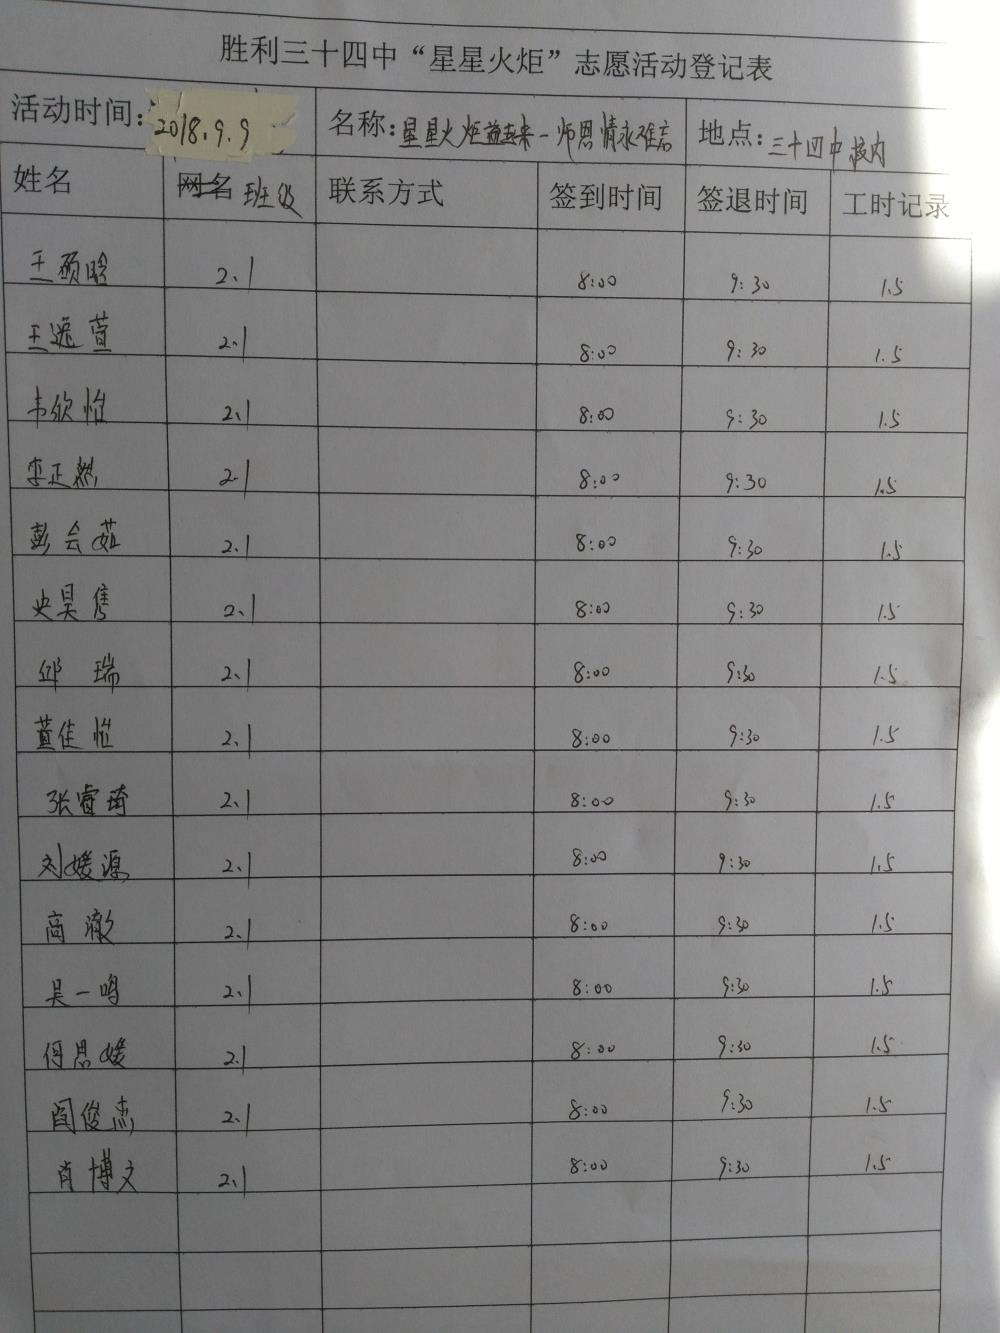 胜利三十四中“星星火炬”志愿活动登记表
活动时间：2018.9.9 名称：星星火炬益起来-师恩情永难忘 地点：三十四中校内
姓名 网名 班级 联系方式 签到时间 签退时间 工时记录
王硕晗 2.1 8:00 9:30 1.5
王逸萱 2.1 8:00 9:30 1.5
韦欣怡 2.1 8:00 9:30 1.5
李正然 2.1 8:00 9:30 1.5
彭会茹 2.1 8:00 9:30 1.5
史昊隽 2.1 8:00 9:30 1.5
邱瑞 2.1 8:00 9:30 1.5
董佳怡 2.1 8:00 9:30 1.5
张睿琦 2.1 8:00 9:30 1.5
刘媛源 2.1 8:00 9:30 1.5
高澈 2.1 8:00 9:30 1.5
吴一鸣 2.1 8:00 9:30 1.5
何思媛 2.1 8:00 9:30 1.5
闫俊杰 2.1 8:00 9:30 1.5
肖博文 2.1 8:00 9:30 1.5